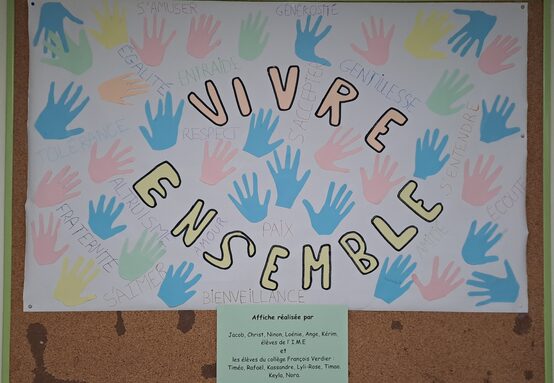 S'AMUSER
GÉNÉROSITÉ
ÉGALITÉ
ENTRAIDE
S'ACCEPTER
GENTILLESSE
VIVRE
TOLÉRANCE
RESPECT
S'ENTENDRE
ENSEMBLE
ALTRUISME
AMOUR
PAIX
ÉCOUTE
FRATERNITÉ
S'AIMER
BIENVEILLANCE
Affiche réalisée par
Jacob, Christ, Ninon, Loénie, Ange, Kérim,
élèves de l'I.M.E
et
les élèves du collège François Verdier :
Timéo, Rafaël, Kassandre, Lyli-Rose, Timao,
Keyla, Nora.